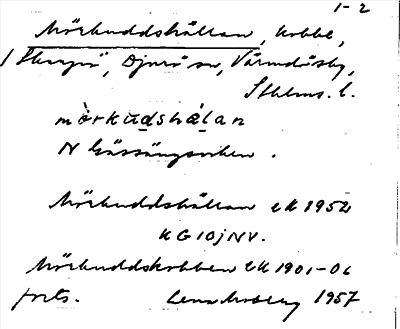 1-2
Mörkuddshällan, kobbe,
Djurö sn, Värmdö sby,
Sthlms. l.
mörkudshälan
N Gåssängsviken.
Mörkuddshällan ek 1952
KG 10j NV.
Mörkuddskobben ek 1901-06
forts. Lena Moberg 1957